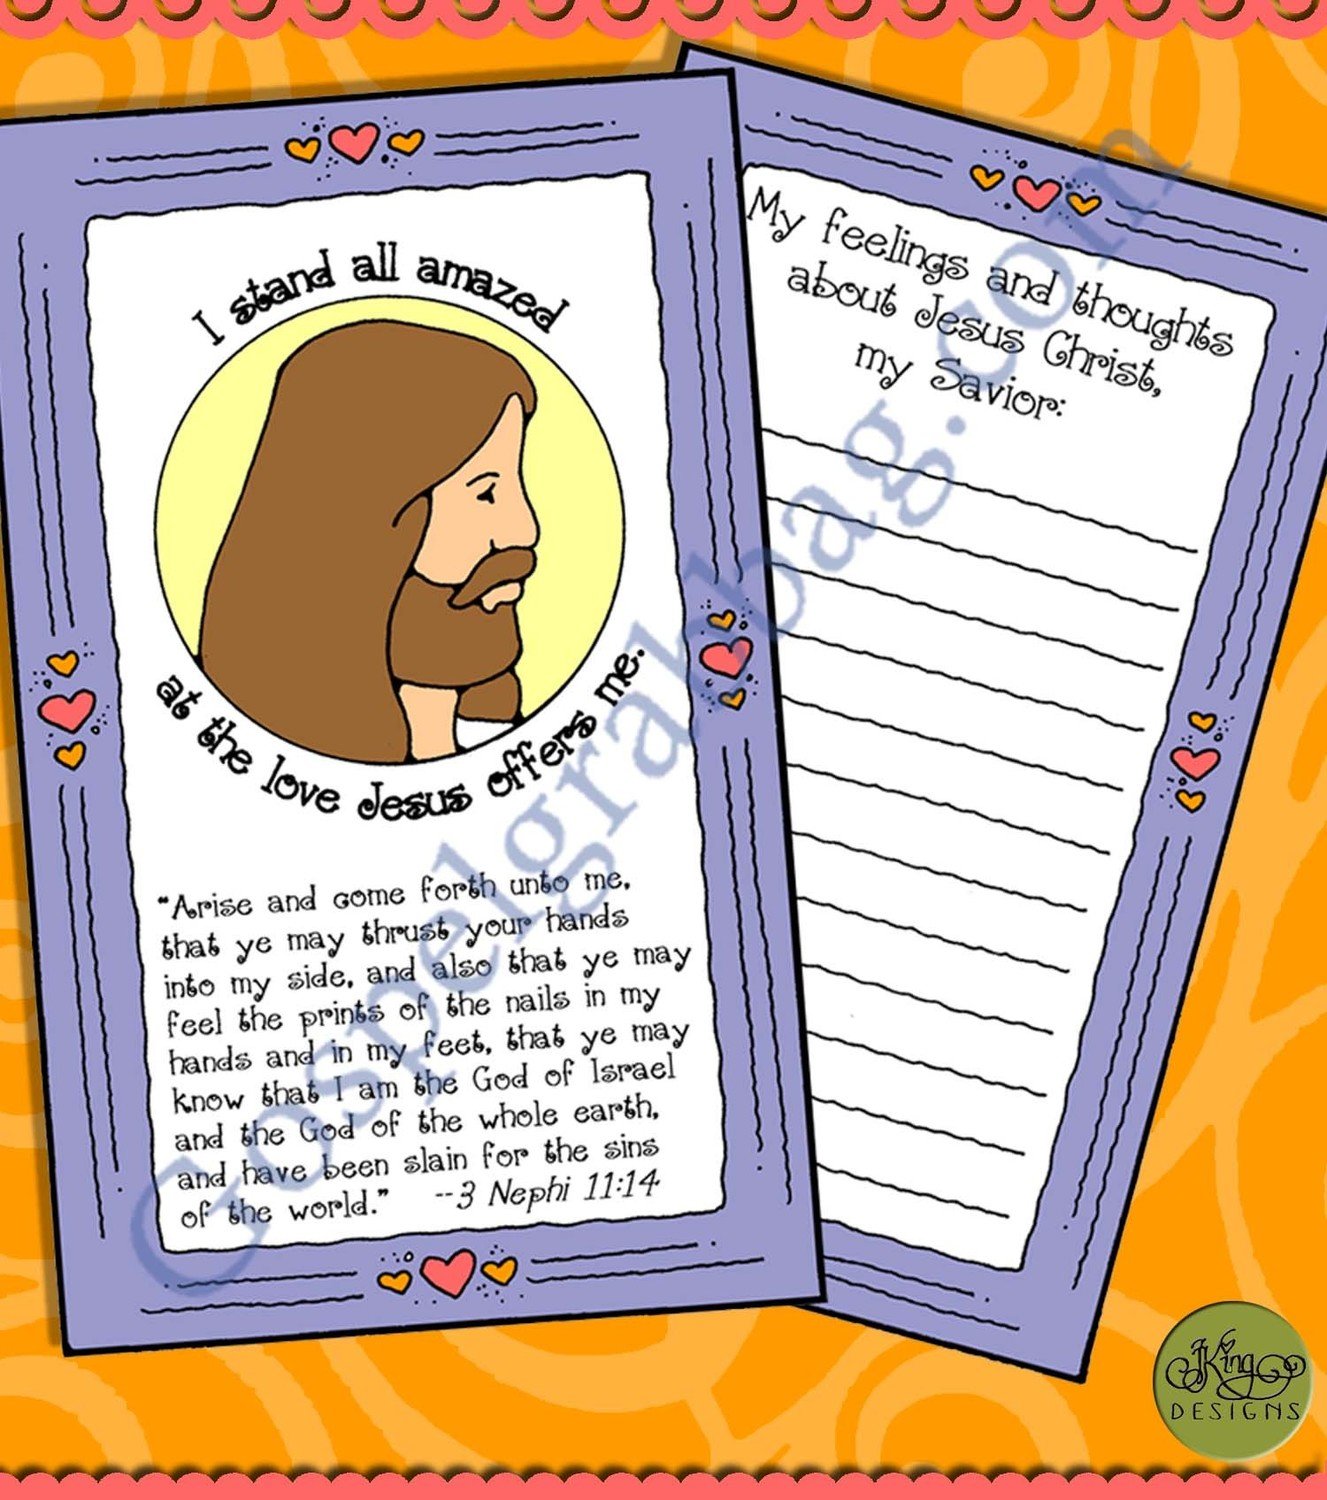 I stand all amazed
at the love Jesus offers me.
"Arise and come forth unto me,
that ye may thrust your hands
into my side, and also that ye may
feel the prints of the nails in my
hands and in my feet, that ye may
know that I am the God of Israel
and the God of the whole earth,
and have been slain for the sins
of the world." --3 Nephi 11:14
My feelings and thoughts
about Jesus Christ,
my Savior:
Gospelgrabbag.com
JKing
DESIGNS